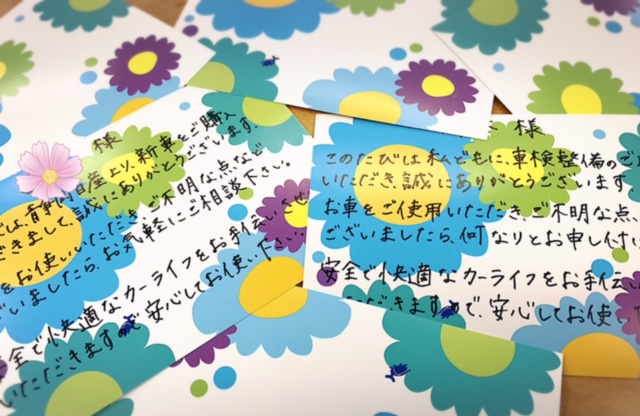 様
では、青森日産より、新車をご購入
だきまして、誠にありがとうございます。
をお使いいただき、ご不明な点など
ざいましたら、お気軽にご相談下さい。
安全で快適なカーライフをお手伝いさせ
いただきますので、安心してお使い下さい。
様
このたびは私どもに、車検整備のご
いただき、誠にありがとうございます。
お車をご使用いただき、ご不明な点、
ございましたら、何なりとお申し付け
安全で快適なカーライフをお手伝い
ただきますので、安心してお使い下